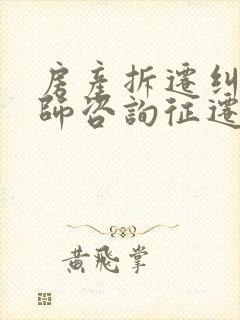 房産拆遷糾
師咨詢征遷
黄飛掌